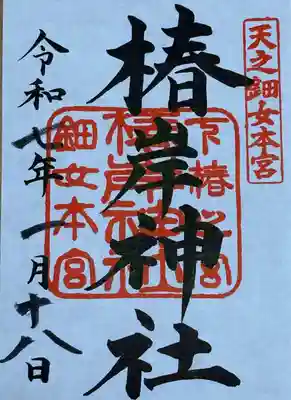 天之鈿女本宮
椿岸神社
令和七年一月十八日
鈿女本宮